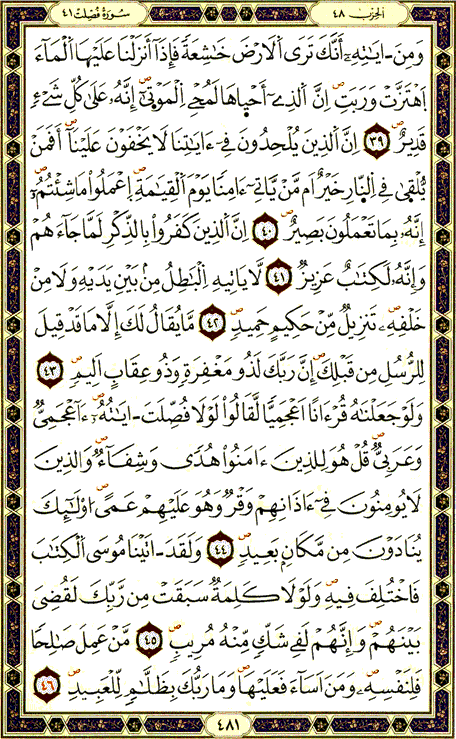 الحزب ٤٨ سورة فصلت ٤١
وَمِنَ ـايَٰتِهِۦٓ أَنَّكَ تَرَى اَلَارْضَ خَٰشِعَةٗ فَإِذَآ أَنزَلْنَا عَلَيْهَا اَلْمَآءَ
اَهْتَزَّتْ وَرَبَتِۖ اِنَّ اَلذِےٓ أَحْيٰاهَا لَمُحْيِ اِلْمَوْتٰىٓۖ إِنَّهُۥ عَلَىٰ كُلِّ شَےْءٖ
قَدِيرٌۖ ٣٩ اِنَّ اَلذِينَ يُلْحِدُونَ فِےٓ ءَايَٰتِنَا لَا يَخْفَوْنَ عَلَيْنَآۖ أَفَمَنْ
يُّلْقٰى فِے اِلنّ۪ارِ خَيْرٌ اَم مَّنْ يَّاتِےٓ ءَامِناٗ يَوْمَ اَلْقِيَٰمَةِۖ اِعْمَلُواْ مَا شِئْتُمُۥٓۖ
إِنَّهُۥ بِمَا تَعْمَلُونَ بَصِيرٌۖ ٤٠ اِنَّ اَلذِينَ كَفَرُواْ بِالذِّكْرِ لَمَّا جَآءَهُمْ
وَإِنَّهُۥ لَكِتَٰبٌ عَزِيزٞۖ ٤١ لَّا يَاتِيهِ اِلْبَٰطِلُ مِنۢ بَيْنِ يَدَيْهِ وَلَا مِنْ
خَلْفِهِۦۖ تَنزِيلٞ مِّنْ حَكِيمٍ حَمِيدٖۖ ٤٢ مَّا يُقَالُ لَكَ إِلَّا مَا قَدْ قِيلَ
لِلرُّسُلِ مِن قَبْلِكَۖ إِنَّ رَبَّكَ لَذُو مَغْفِرَةٖ وَذُو عِقَابٍ اَلِيمٖۖ ٤٣
وَلَوْ جَعَلْنَٰهُ قُرْءَاناً اَعْجَمِيّاٗ لَّقَالُواْ لَوْلَا فُصِّلَتَ ـايَٰتُهُۥٓۖ ءَآعْجَمِيّٞ
وَعَرَبِيّٞۖ قُلْ هُوَ لِلذِينَ ءَامَنُواْ هُديٗ وَشِفَآءٞۖ وَالذِينَ
لَا يُومِنُونَ فِےٓ ءَاذَانِهِمْ وَقْرٞ وَهُوَ عَلَيْهِمْ عَمىًۖ ا۟وْلَٰٓئِكَ
يُنَادَوْنَ مِن مَّكَانِۢ بَعِيدٖۖ ٤٤ وَلَقَدَ ـاتَيْنَا مُوسَى اَلْكِتَٰبَ
فَاخْتُلِفَ فِيهِۖ وَلَوْلَا كَلِمَةٞ سَبَقَتْ مِن رَّبِّكَ لَقُضِيَ
بَيْنَهُمْۖ وَإِنَّهُمْ لَفِے شَكّٖ مِّنْهُ مُرِيبٖۖ ٤٥ مَّنْ عَمِلَ صَٰلِحاٗ
فَلِنَفْسِهِۦۖ وَمَنَ اَسَآءَ فَعَلَيْهَاۖ وَمَا رَبُّكَ بِظَلَّٰمٖ لِّلْعَبِيدِۖ ٤٦
٤٨١